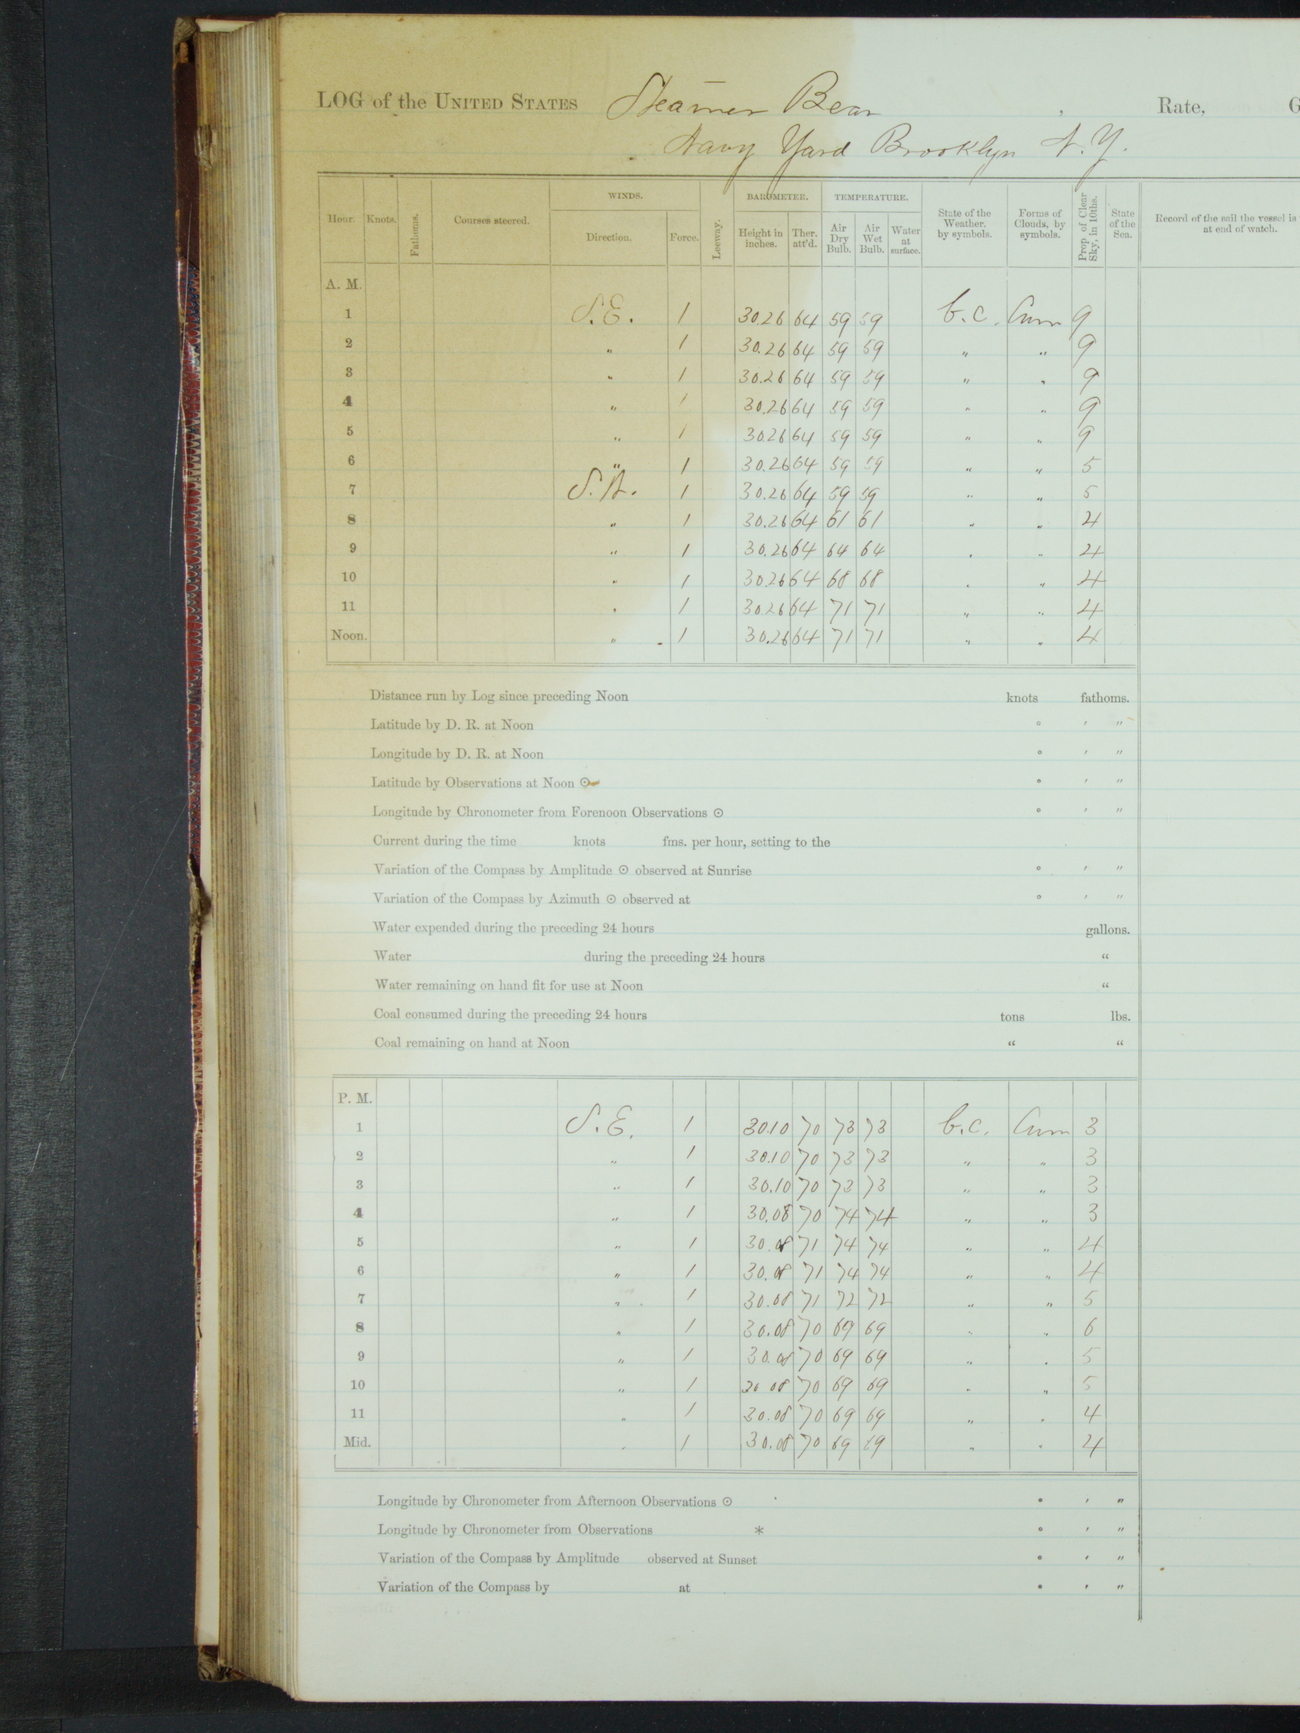 LOG of the UNITED STATES Steamer Bear, Rate, G
Navy Yard Brooklyn N.Y.
Hour. Knots. Fathoms. Courses steered. WINDS. Direction. Force. Leeway. BAROMETER. Height in inches. Ther. att'd. TEMPERATURE. Air Dry Bulb. Air Wet Bulb. Water at surface. State of the Weather, by symbols. Forms of Clouds, by symbols. Prop. of Clear Sky, in 10ths. State of the Sea. Record of the sail the vessel is at end of watch.
A. M.
1 S.E. 1 30.26 64 59 59 b.c. Cum 9
2 " 1 30.26 64 59 59 " " 9
3 " 1 30.26 64 59 59 " " 9
4 " 1 30.26 64 59 59 " " 9
5 " 1 30.26 64 59 59 " " 9
6 " 1 30.26 64 59 59 " " 5
7 1 30.26 64 59 59 " " 5
8 " 1 30.26 64 61 61 " " 4
9 " 1 30.26 64 64 64 " " 4
10 " 1 30.26 64 68 68 " " 4
11 " 1 30.26 64 71 71 " " 4
Noon. " 1 30.26 64 71 71 " " 4
Distance run by Log since preceding Noon knots fathoms.
Latitude by D. R. at Noon ° ' "
Longitude by D. R. at Noon ° ' "
Latitude by Observations at Noon ⊙ ° ' "
Longitude by Chronometer from Forenoon Observations ⊙ ° ' "
Current during the time knots fms. per hour, setting to the
Variation of the Compass by Amplitude ⊙ observed at Sunrise ° ' "
Variation of the Compass by Azimuth ⊙ observed at ° ' "
Water expended during the preceding 24 hours gallons.
Water during the preceding 24 hours "
Water remaining on hand fit for use at Noon "
Coal consumed during the preceding 24 hours tons lbs.
Coal remaining on hand at Noon " "
P. M.
1 S.E. 1 30.10 70 73 73 b.c. Cum 3
2 " 1 30.10 70 73 73 " " 3
3 " 1 30.10 70 73 73 " " 3
4 " 1 30.08 70 74 74 " " 3
5 " 1 30.08 71 74 74 " " 4
6 " 1 30.08 71 74 74 " " 4
7 " 1 30.08 71 72 72 " " 5
8 " 1 30.08 70 69 69 " " 6
9 " 1 30.08 70 69 69 " " 5
10 " 1 30.08 70 69 69 " " 5
11 " 1 30.08 70 69 69 " " 4
Mid. " 1 30.08 70 69 69 " " 4
Longitude by Chronometer from Afternoon Observations ⊙ ° ' "
Longitude by Chronometer from Observations * ° ' "
Variation of the Compass by Amplitude observed at Sunset ° ' "
Variation of the Compass by at ° ' "